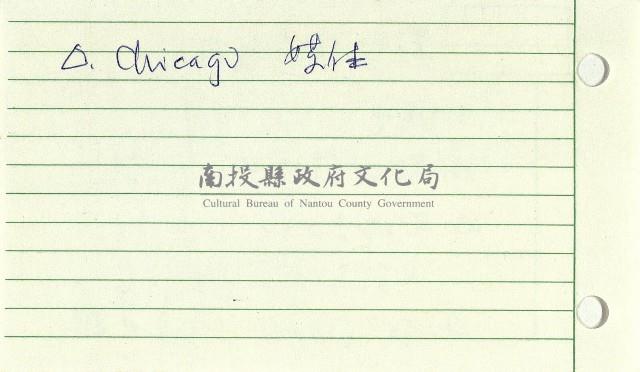 △. Chicago
南投縣政府文化局
Cultural Bureau of Nantou County Government